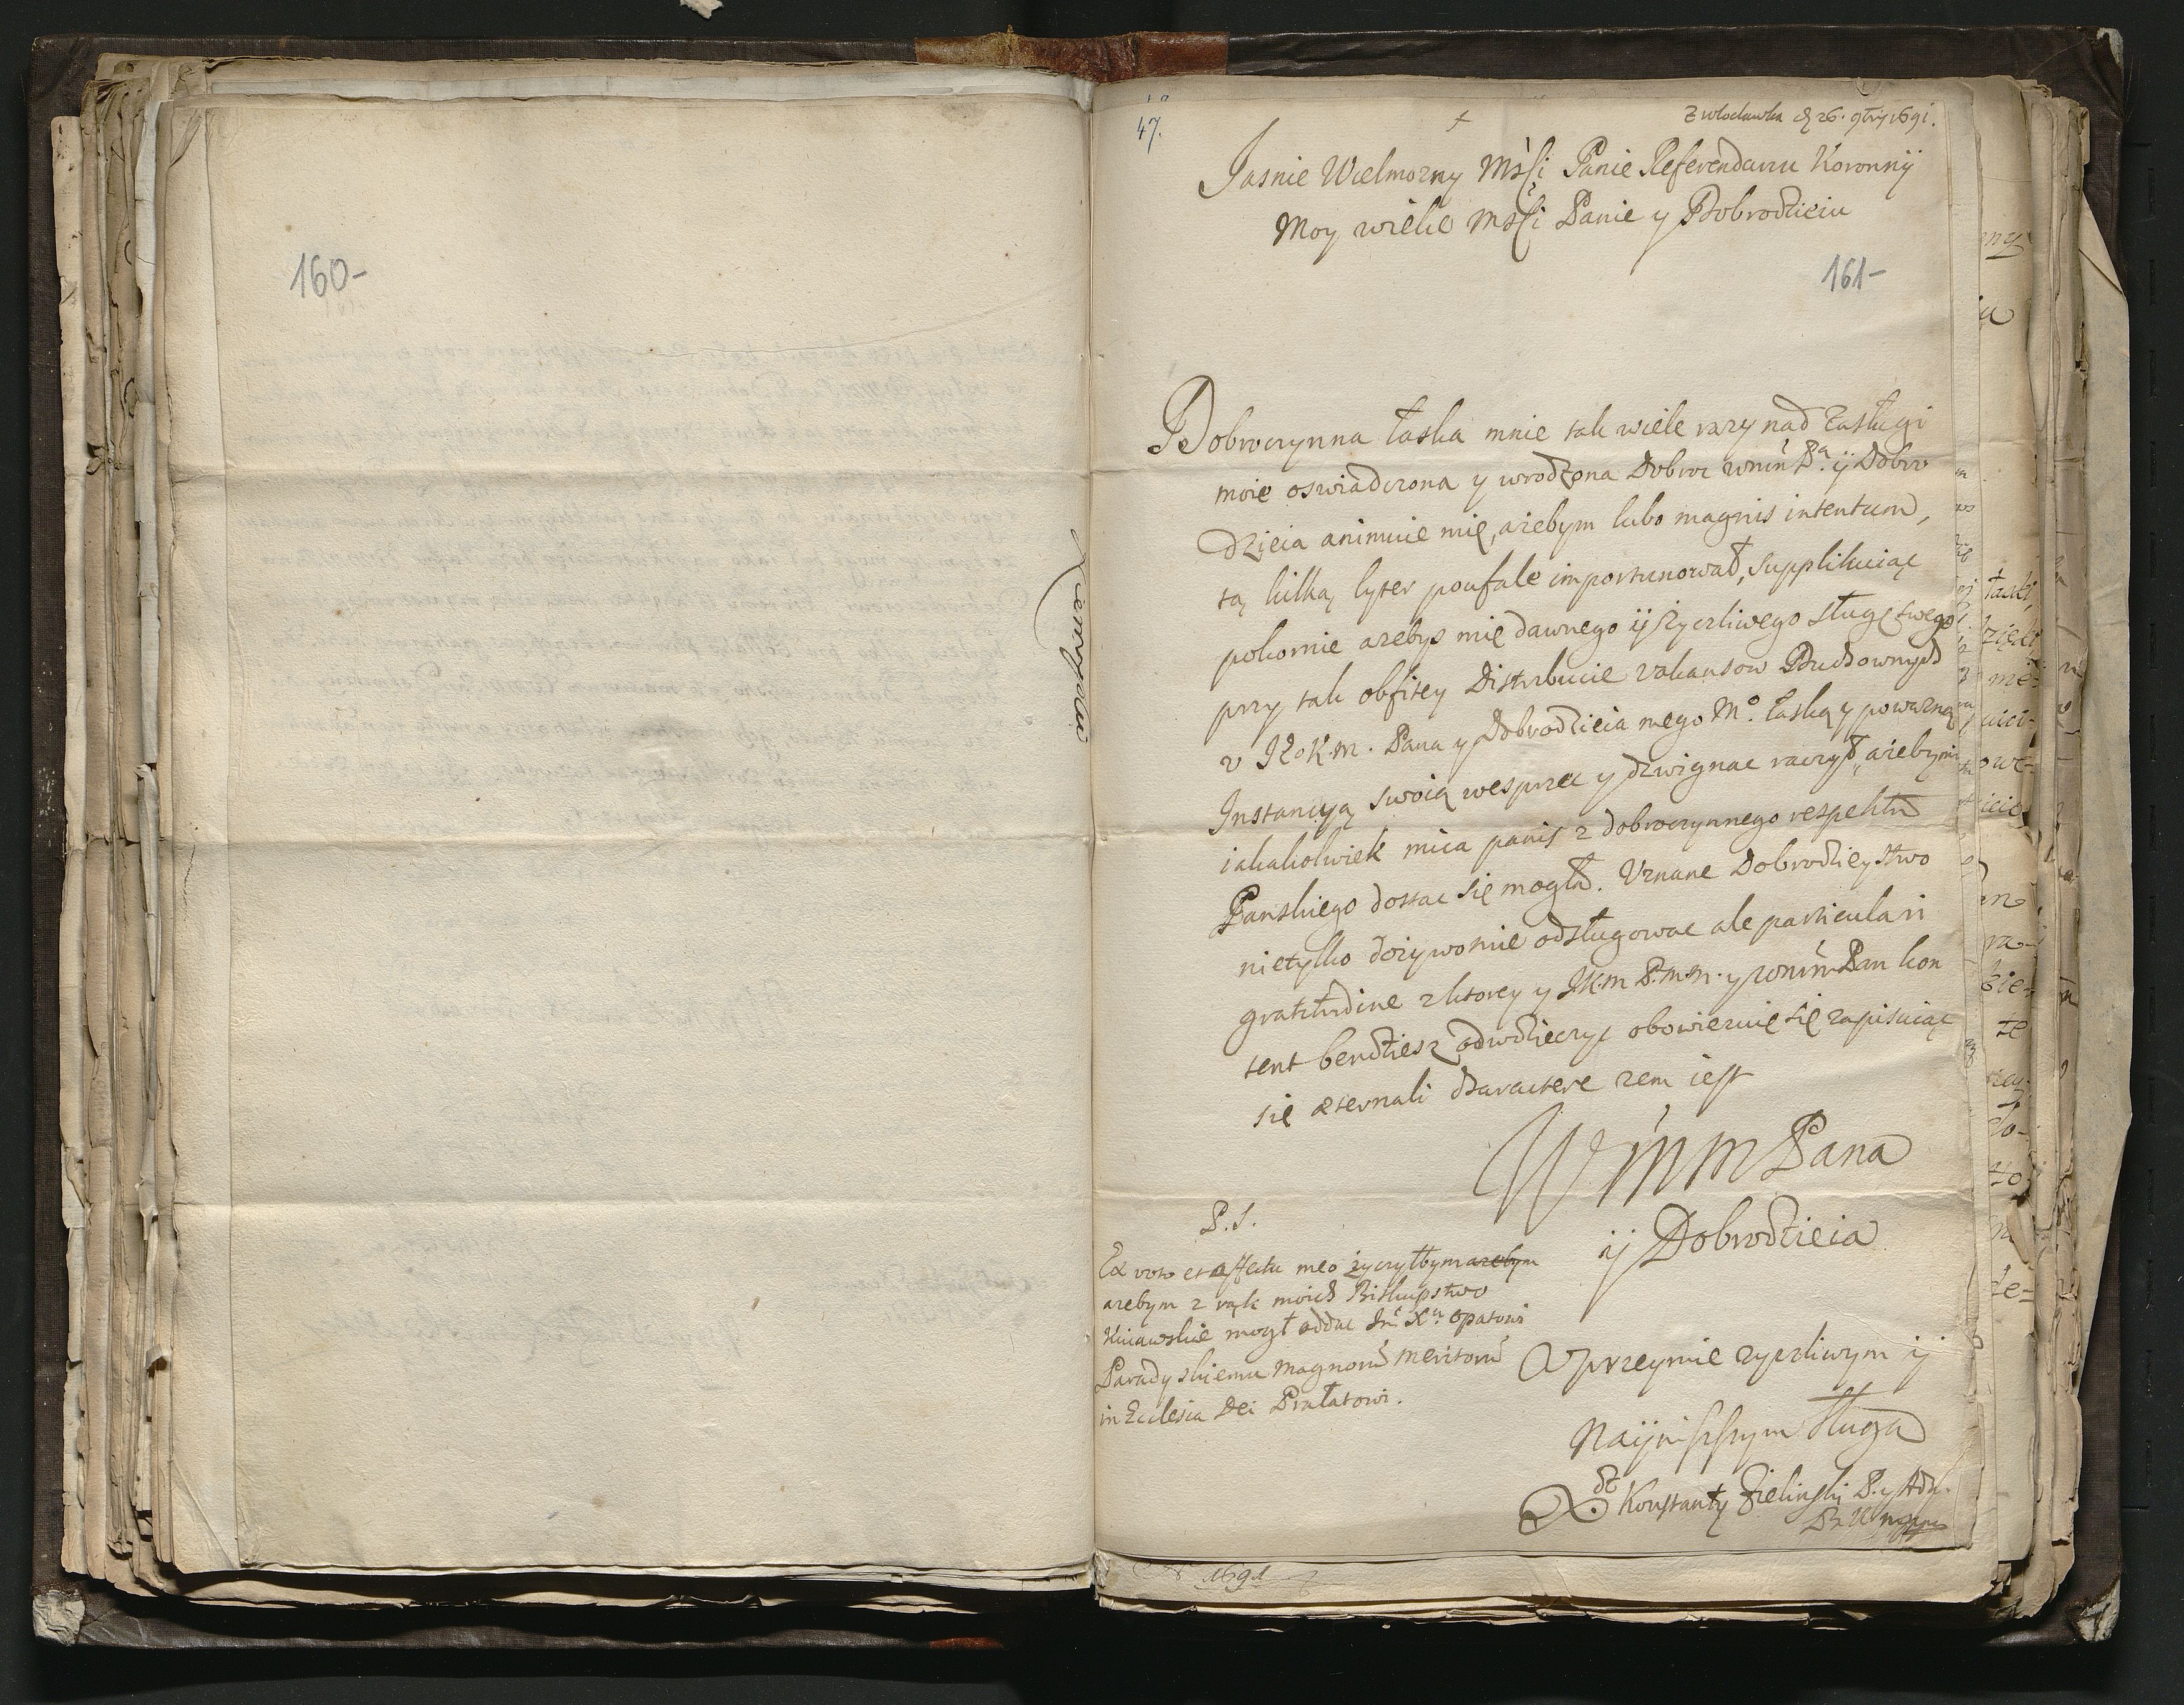 160-
47.
Z Włocławka d 26. 9bry 1691.
Jasnie Wielmozny Mści Panie Referendarzu Koronnÿ
Moy wielce Mści Panie y Dobrodzieiu
161-
Dobroczynna łaska mnie tak wiele razy nad zasługi
moie oswiadczona y wrodzona Dobroc wmm Pa. ÿ Dobro
dzieia animuie mię, azebym lubo magnis intentum,
tą kilką lyter poufale importunował, supplikuiąc
pokornie azebys mię dawnego ÿ zyczliwego sługę swego
przy tak obfitey Distribucie vakansow Duchownych
v Jego K.m. Pana y Dobrodzieia mego Mo. łaską y powazną
Instancyą swoią wesprzec y dzwignac raczył, azebymi
iakakolwiek mica panis z dobroczynnego respektu
Panskiego dostac się mogła. Uznane Dobrodzieystwo
nietylko dozywotnie odsługowac ale particulari
gratitudine z ktorey y J.K.m P.m.m. y wmm Pan kon
tent bendziesz odwdzieczyc obowiezuię się zapisuiąc
się æternali charactere zem iest
W m m Pana
ÿ Dobrodzieia
P.S.
Ex voto et affectu meo zyczyłbym azebym
azebym z rąk moich Biskupstwo
Kuiawskie mogł oddac Jm. Xu. Opatowi
Paradyskiemu magnorum meritorum
in Ecclesia Dei Prałatowi.
Vprzeymie zyczliwym ÿ
Nayniszszym sługą
X. Konstanty Zielinski P. y Adm.
1691